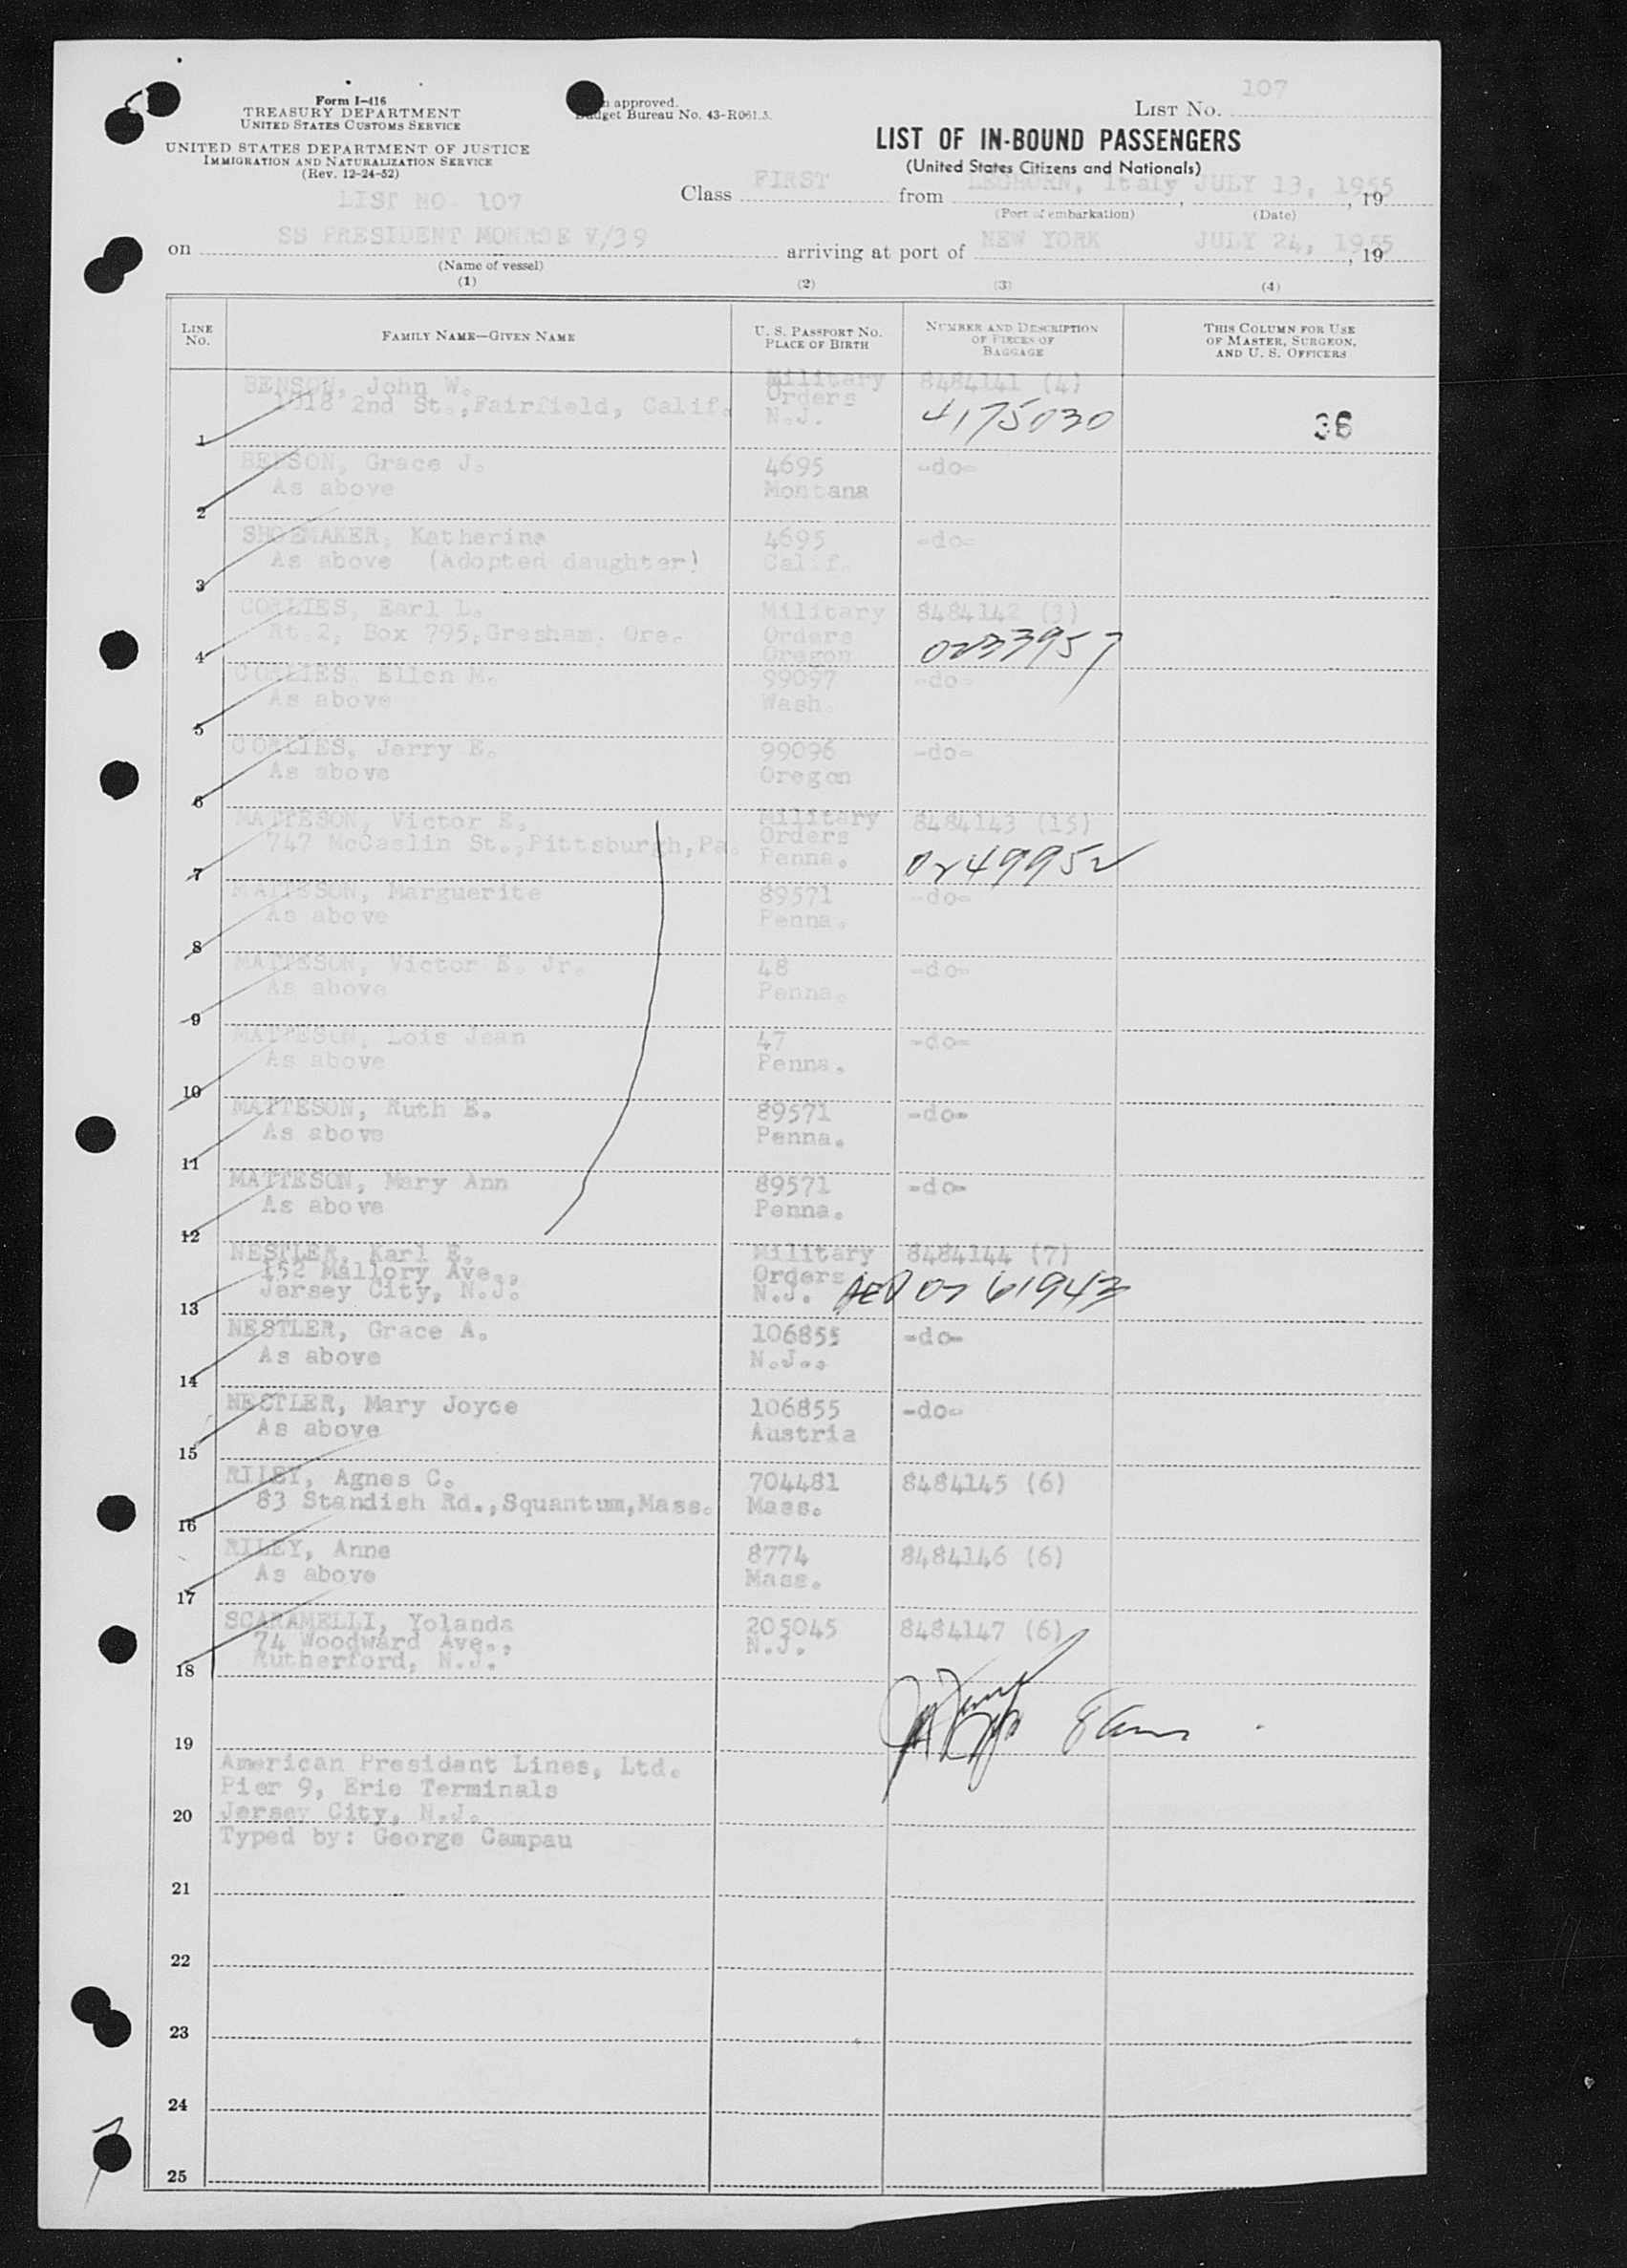 Form I-416
TREASURY DEPARTMENT
UNITED STATES CUSTOMS SERVICE
UNITED STATES DEPARTMENT OF JUSTICE
IMMIGRATION AND NATURALIZATION SERVICE
(Rev. 12-24-52)
approved.
Budget Bureau No. 43-R061.5.
LIST NO. 107
LIST OF IN-BOUND PASSENGERS
(United States Citizens and Nationals)
LIST NO. 107
Class FIRST from LEGHORN, Italy, JULY 13, 1955, 19
(Port of embarkation) (Date)
on SS PRESIDENT MONROE V/39 arriving at port of NEW YORK JULY 24, 1955, 19
(Name of vessel)
(1) (2) (3) (4)
LINE NO. FAMILY NAME—GIVEN NAME U. S. PASSPORT NO. PLACE OF BIRTH NUMBER AND DESCRIPTION OF PIECES OF BAGGAGE THIS COLUMN FOR USE OF MASTER, SURGEON, AND U. S. OFFICERS
BENSON, John W. Military 8484141 (4)
1018 2nd St., Fairfield, Calif. Orders 4175030
1 N.J. 36
BENSON, Grace J. 4695 -do-
As above Montana
2
SHOEMAKER, Katherine 4695 -do-
As above (Adopted daughter) Calif.
3
CORLIES, Earl L. Military 8484142 (3)
Rt 2, Box 795, Gresham, Ore. Orders
4 Oregon
CORLIES, Ellen M. 99097 -do-
As above Wash.
5
CORLIES, Jerry E. 99096 -do-
As above Oregon
6
MATTESON, Victor E. Military 8484143 (15)
747 McCaslin St., Pittsburgh, Pa. Orders
7 Penna.
MATTESON, Marguerite 89571 -do-
As above Penna.
8
MATTESON, Victor E. Jr. 48 -do-
As above Penna.
9
MATTESON, Lois Jean 47 -do-
As above Penna.
10
MATTESON, Ruth E. 89571 -do-
As above Penna.
11
MATTESON, Mary Ann 89571 -do-
As above Penna.
12
NESTLER, Karl E. Military 8484144 (7)
152 Mallory Ave., Orders
13 Jersey City, N.J. N.J.
NESTLER, Grace A. 106855 -do-
As above N.J..
14
NESTLER, Mary Joyce 106855 -do-
As above Austria
15
RILEY, Agnes C. 704481 8484145 (6)
83 Standish Rd., Squantum, Mass. Mass.
16
RILEY, Anne 8774 8484146 (6)
As above Mass.
17
SCARAMELLI, Yolanda 205045 8484147 (6)
74 Woodward Ave., N.J.
18 Rutherford, N.J.
19
American President Lines, Ltd.
Pier 9, Erie Terminals
20 Jersey City, N.J.
Typed by: George Campau
21
22
23
24
25